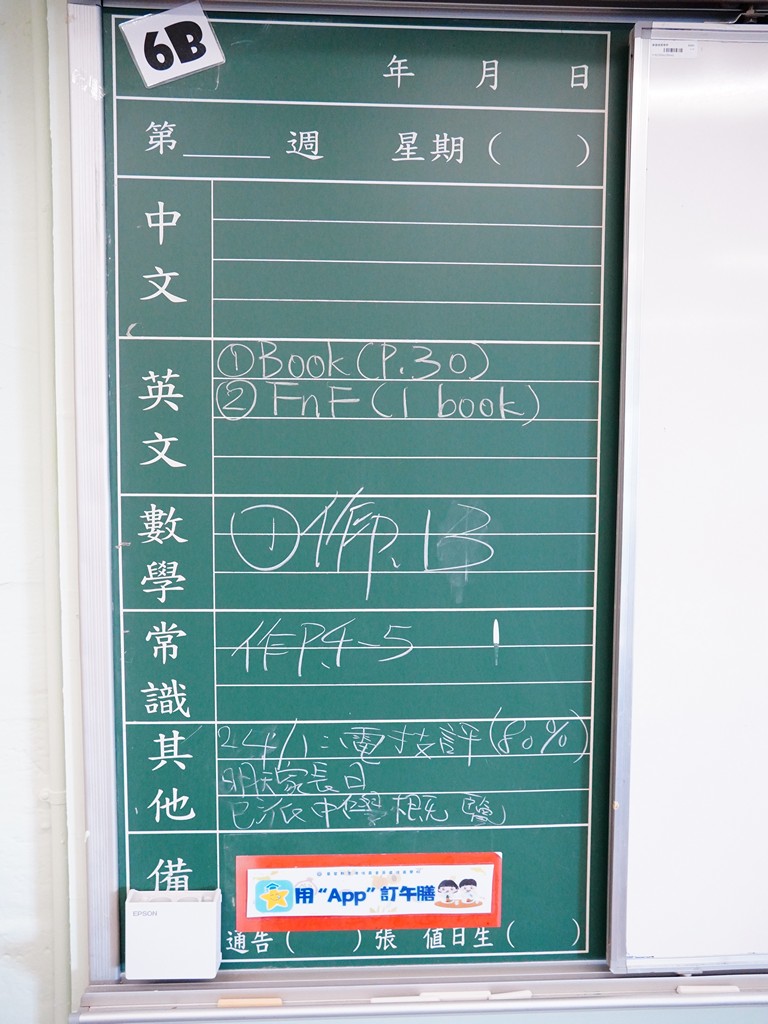 6B
年 月 日
第 週 星期( )
中文
英文
①Book(P.30)
②FnF(1 book)
數學
①作P.13
常識
作P.4-5
其他
24/1:電技評(80%)
明天家長日
已派中學概覽
備
用“App”訂午膳
EPSON
通告( )張 值日生( )